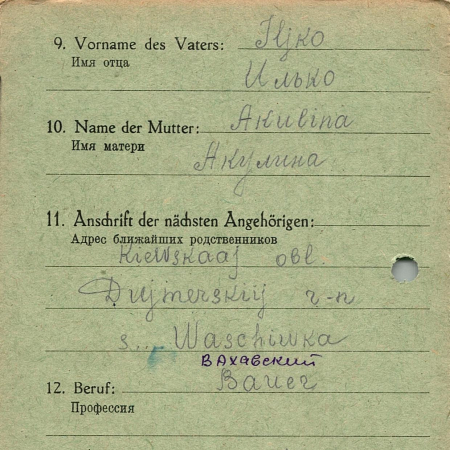 9. Vorname des Vaters: Iljko
Имя отца
Илько
10. Name der Mutter: Akulina
Имя матери
Акулина
11. Anschrift der nächsten Angehörigen:
Адрес ближайших родственников
Kiewskaaj obl.
Dujmerskij r-n
s... Waschiwka
12. Beruf: Bauer
Профессия